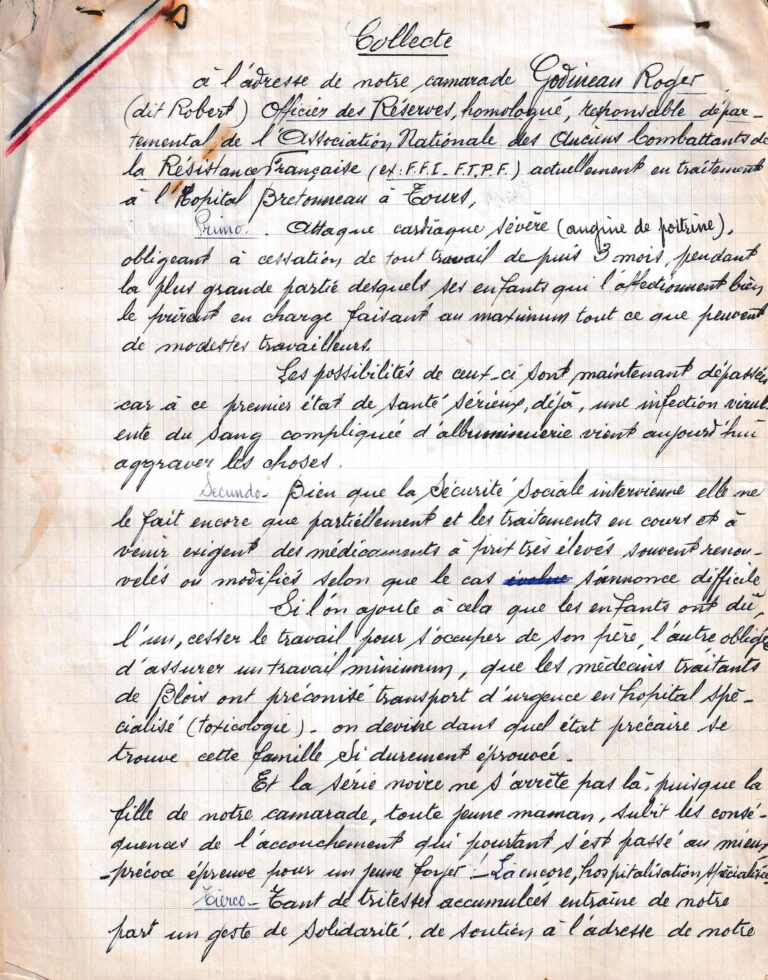 Collecte
à l'adresse de notre camarade Godineau Roger
(dit Robert) Officier des Réserves, homologué, responsable dépar-
temental de l'Association Nationale des Anciens Combattants de
la Résistance Française (ex: F.F.I - F.T.P.F.) actuellement en traitement
à l'Hopital Bretonneau à Tours,
Primo. Attaque cardiaque sévère (angine de poitrine),
obligeant à cessation de tout travail depuis 3 mois, pendant
la plus grande partie desquels ses enfants qui l'affectionnent bien
le prirent en charge faisant au maximum tout ce que peuvent
de modestes travailleurs.
Les possibilités de ceux-ci sont maintenant dépassées
car à ce premier état de santé sérieux, déjà, une infection virul-
ente du sang compliquée d'albuminuerie vient aujourd'hui
aggraver les choses.
Secundo- Bien que la Sécurité Sociale intervienne elle ne
le fait encore que partiellement et les traitements en cours et à
venir exigent des médicaments à prix très élevés souvent renou-
velés ou modifiés selon que le cas s'annonce difficile
Si l'on ajoute à cela que les enfants ont dû,
l'un, cesser le travail pour s'occuper de son père, l'autre obligée
d'assurer un travail minimum, que les médecins traitants
de Blois ont préconisé transport d'urgence en hopital spé-
cialisé (toxicologie) - on devine dans quel état précaire se
trouve cette famille si durement éprouvée.
Et la série noire ne s'arrête pas là, puisque la
fille de notre camarade, toute jeune maman, subit les consé-
quences de l'accouchement qui pourtant s'est passé au mieux
-précoce épreuve pour un jeune foyer! Là encore, hospitalisation spécialisée
Tierco- Tant de tritesses accumulées entraîne de notre
part un geste de solidarité, de soutien à l'adresse de notre